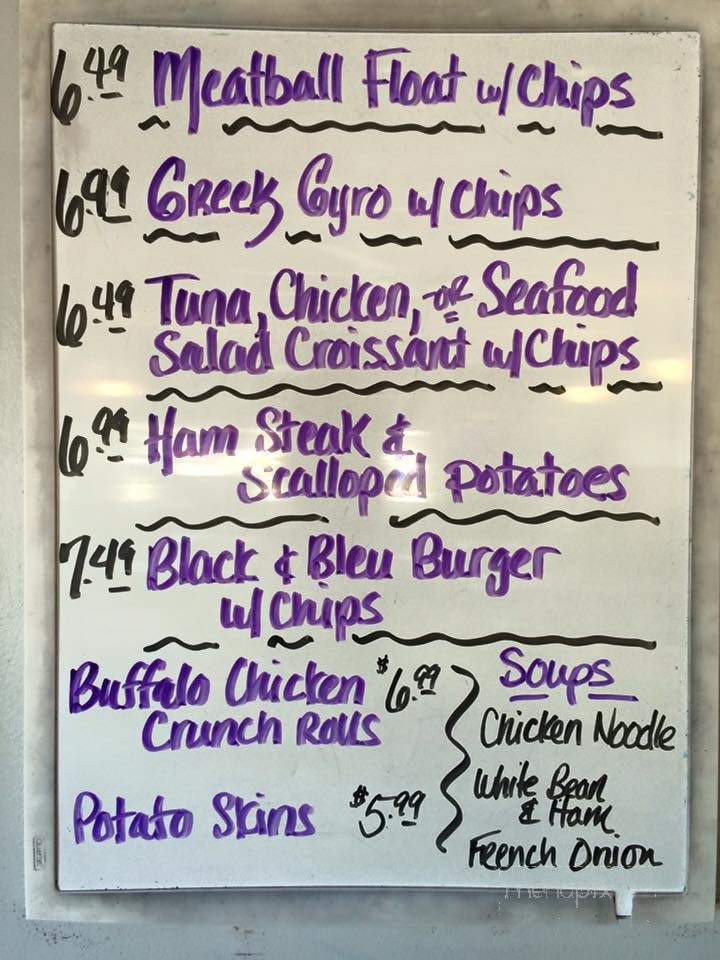 6.49 Meatball Float w/ Chips
6.99 Greek Gyro w/ Chips
6.49 Tuna, Chicken, or Seafood
Salad Croissant w/ Chips
6.99 Ham Steak &
Scalloped Potatoes
7.49 Black & Bleu Burger
w/ Chips
Buffalo Chicken $6.99
Crunch Rolls
Potato Skins $5.99
Soups
Chicken Noodle
White Bean
& Ham
French Onion
menupix